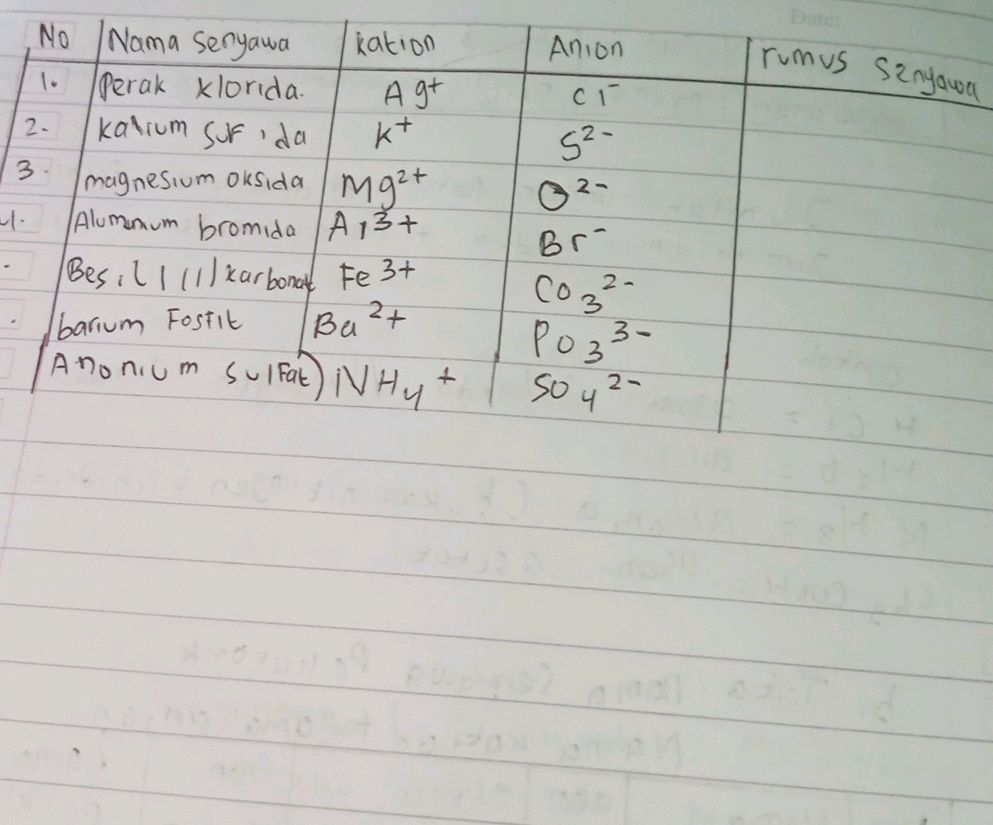 Date:
No Nama senyawa kation Anion rumus senyawa
1. Perak klorida. Ag+ Cl-
2. kalium surida K+ S2-
3. magnesium oksida Mg2+ O2-
4. Aluminum bromida Al3+ Br-
Besi (III) karbonat Fe3+ CO3 2-
barium Fosfit Ba2+ PO3 3-
Anonium sulfat NH4+ SO4 2-